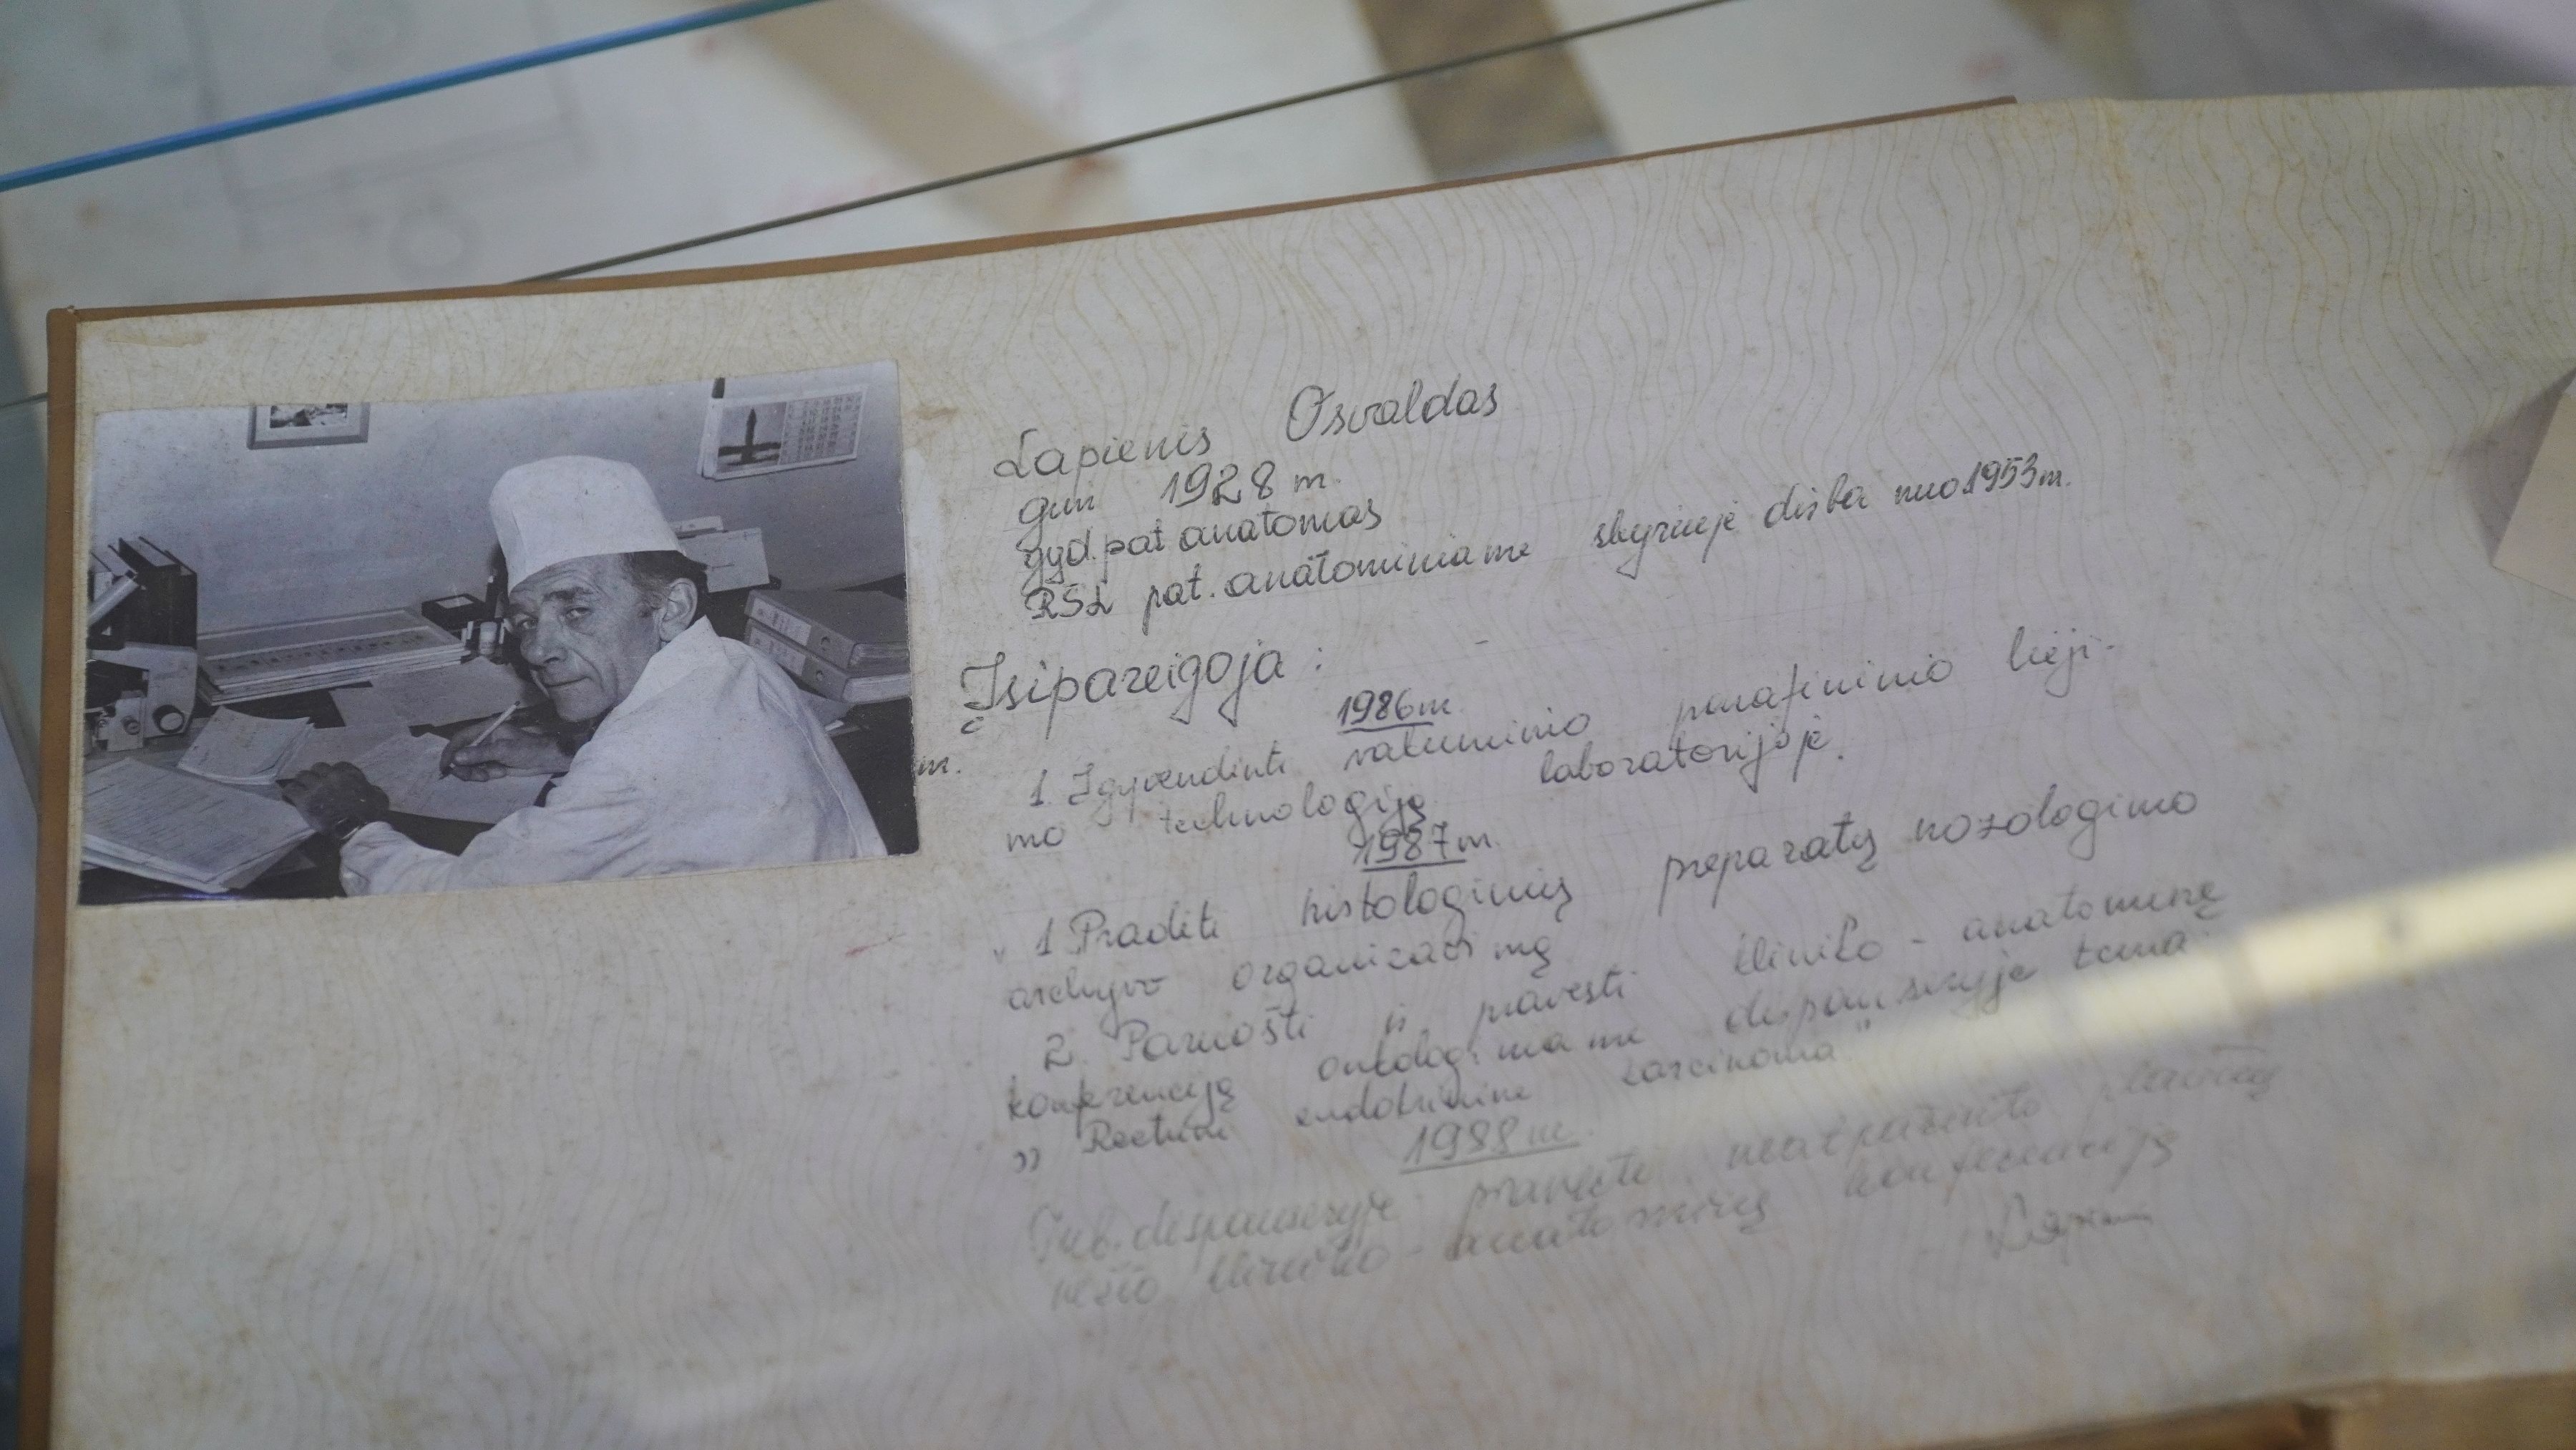 Lapienis Osvaldas
gim 1928 m.
gyd. pat anatomas
RSL pat. anatominiame skyriuje dirba nuo 1953 m.
Įsipareigoja :
1986 m.
1. Įgyvendinti vakuminio parafininio lieji-
mo technologiją laboratorijoje.
m.
1987 m.
1 Pradėti histologinių preparatų nozologinio
archyvo organizavimą
2. Paruošti ir pravesti kliniko - anatominę
konferenciją onkologiniame dispanseryje tema
„ Rectum endokrininė carcinoma"
1988 m.
Tub. dispanseryje pravesti neatpažinto plaučių
vėžio kliniko - anatominę konferenciją